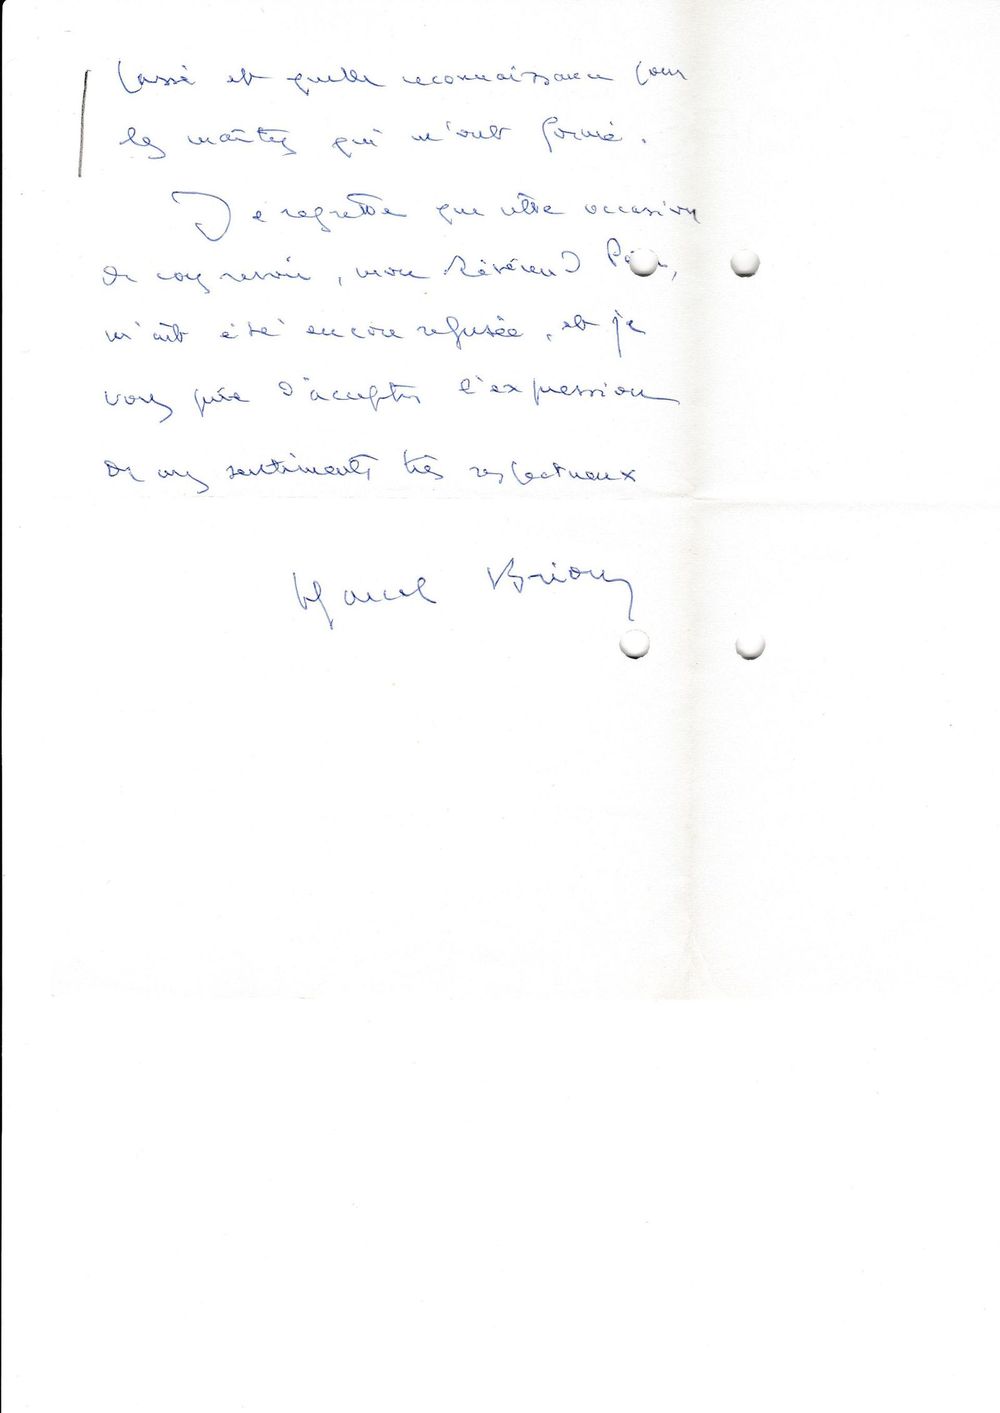 passé et quelle reconnaissance pour
les maîtres qui m'ont formé.
Je regrette que cette occasion
de vous revoir, mon Révérend Père,
m'ait été encore refusée, et je
vous prie d'accepter l'expression
de mes sentiments très respectueux
Marcel Brion